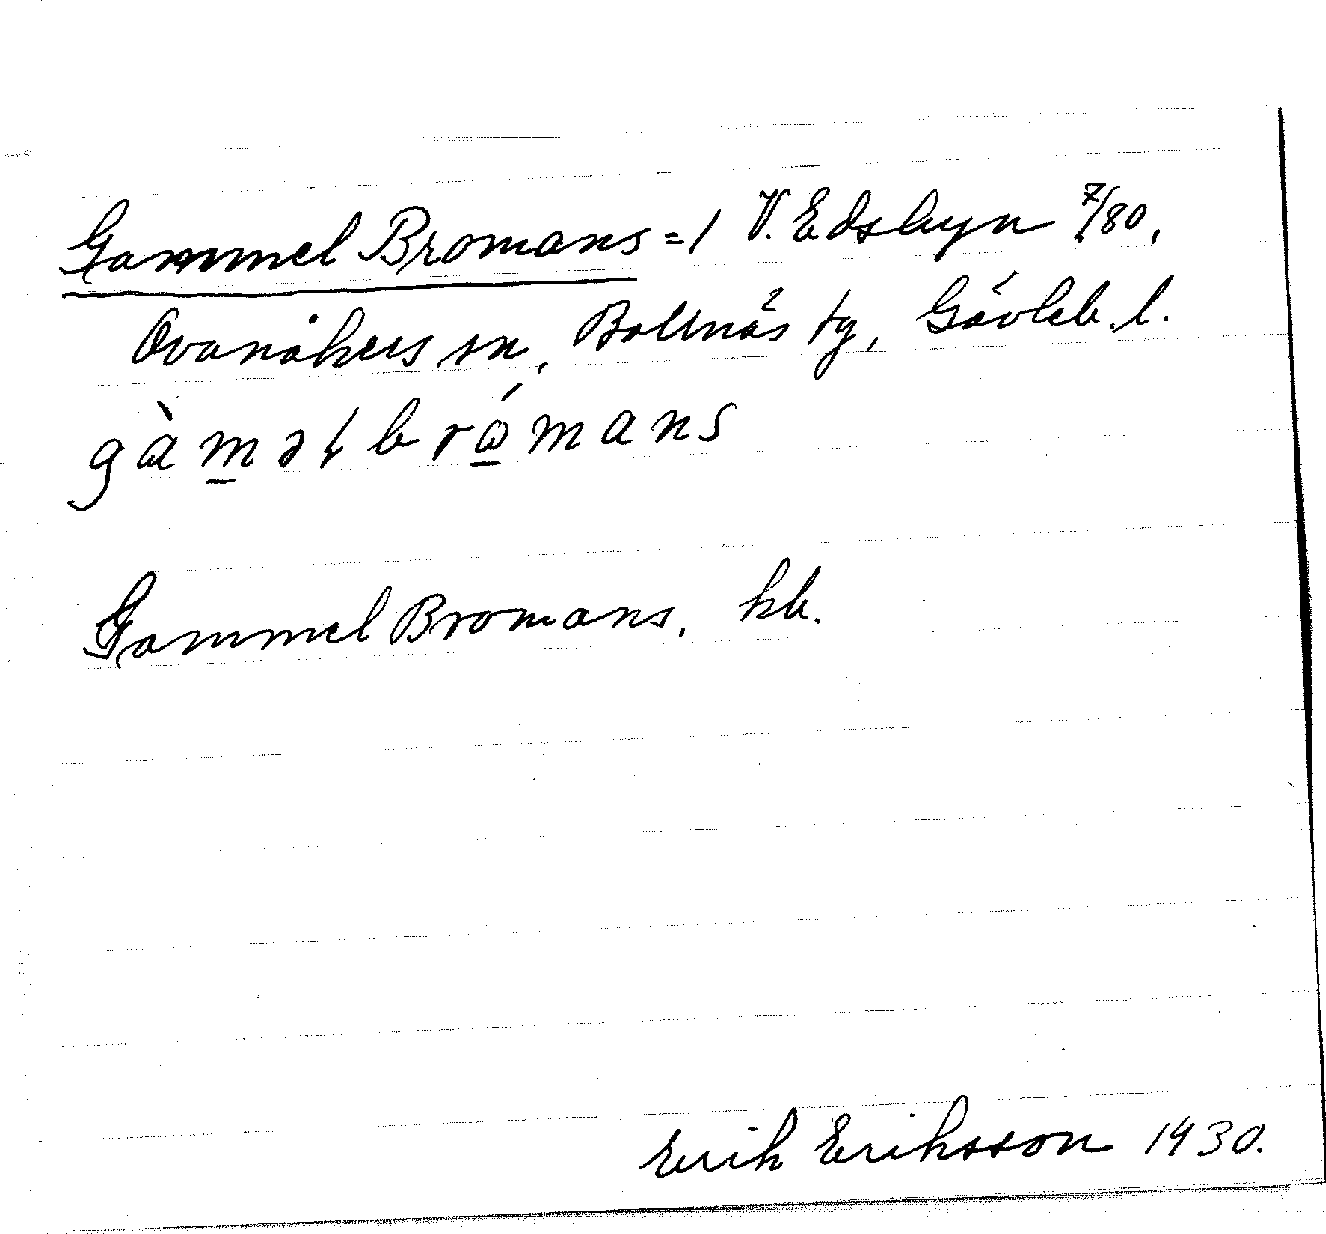 Gammel Bromans = / V. Edsbyn 7/80,
Ovanåkers sn, Bollnäs tg, Gävleb. l.
gàməłbrómans
Gammel Bromans, hb.
Erik Eriksson 1930.